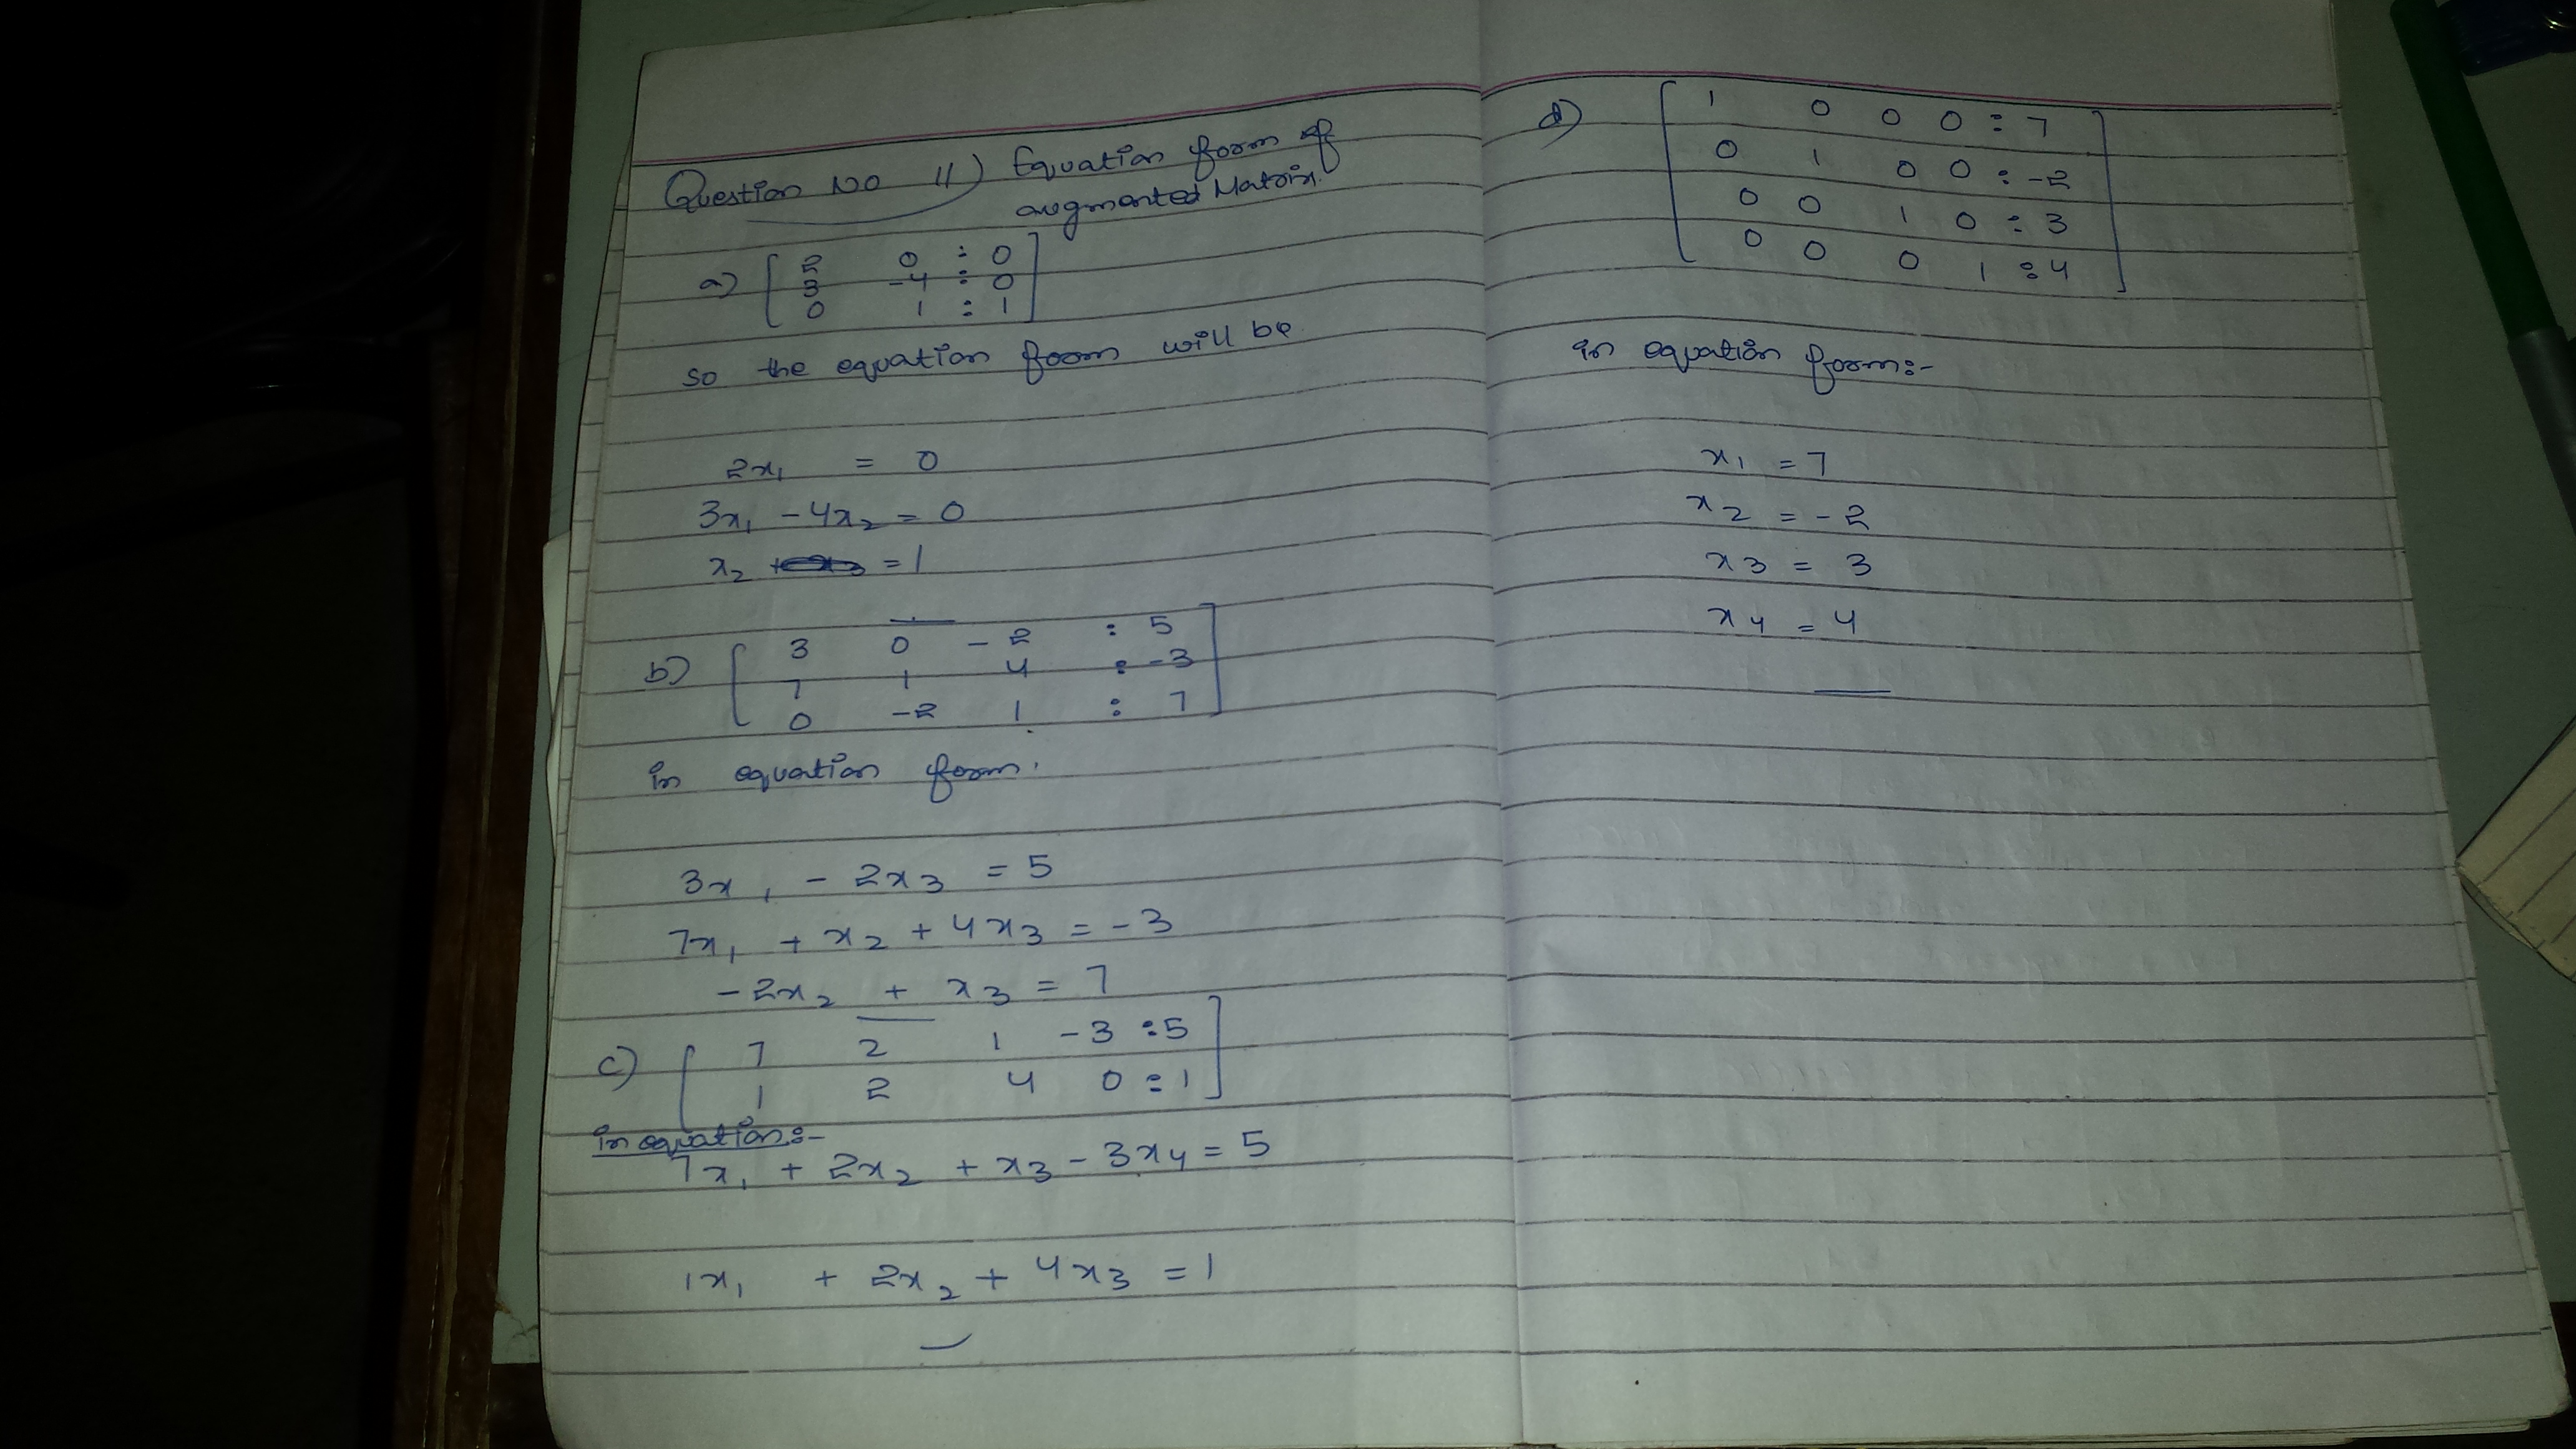 Question No 11) Equation form of
augmented Matrix.
a) [ 2 0 : 0
3 -4 : 0
0 1 : 1 ]
so the equation form will be
2x₁ = 0
3x₁ - 4x₂ = 0
x₂ = 1
b) [ 3 0 -2 : 5
7 1 4 : -3
0 -2 1 : 7 ]
in equation form.
3x₁ - 2x₃ = 5
7x₁ + x₂ + 4x₃ = -3
-2x₂ + x₃ = 7
c) [ 7 2 1 -3 : 5
1 2 4 0 : 1 ]
in equation:-
7x₁ + 2x₂ + x₃ - 3x₄ = 5
1x₁ + 2x₂ + 4x₃ = 1
d) [ 1 0 0 0 : 7
0 1 0 0 : -2
0 0 1 0 : 3
0 0 0 1 : 4 ]
in equation form:-
x₁ = 7
x₂ = -2
x₃ = 3
x₄ = 4